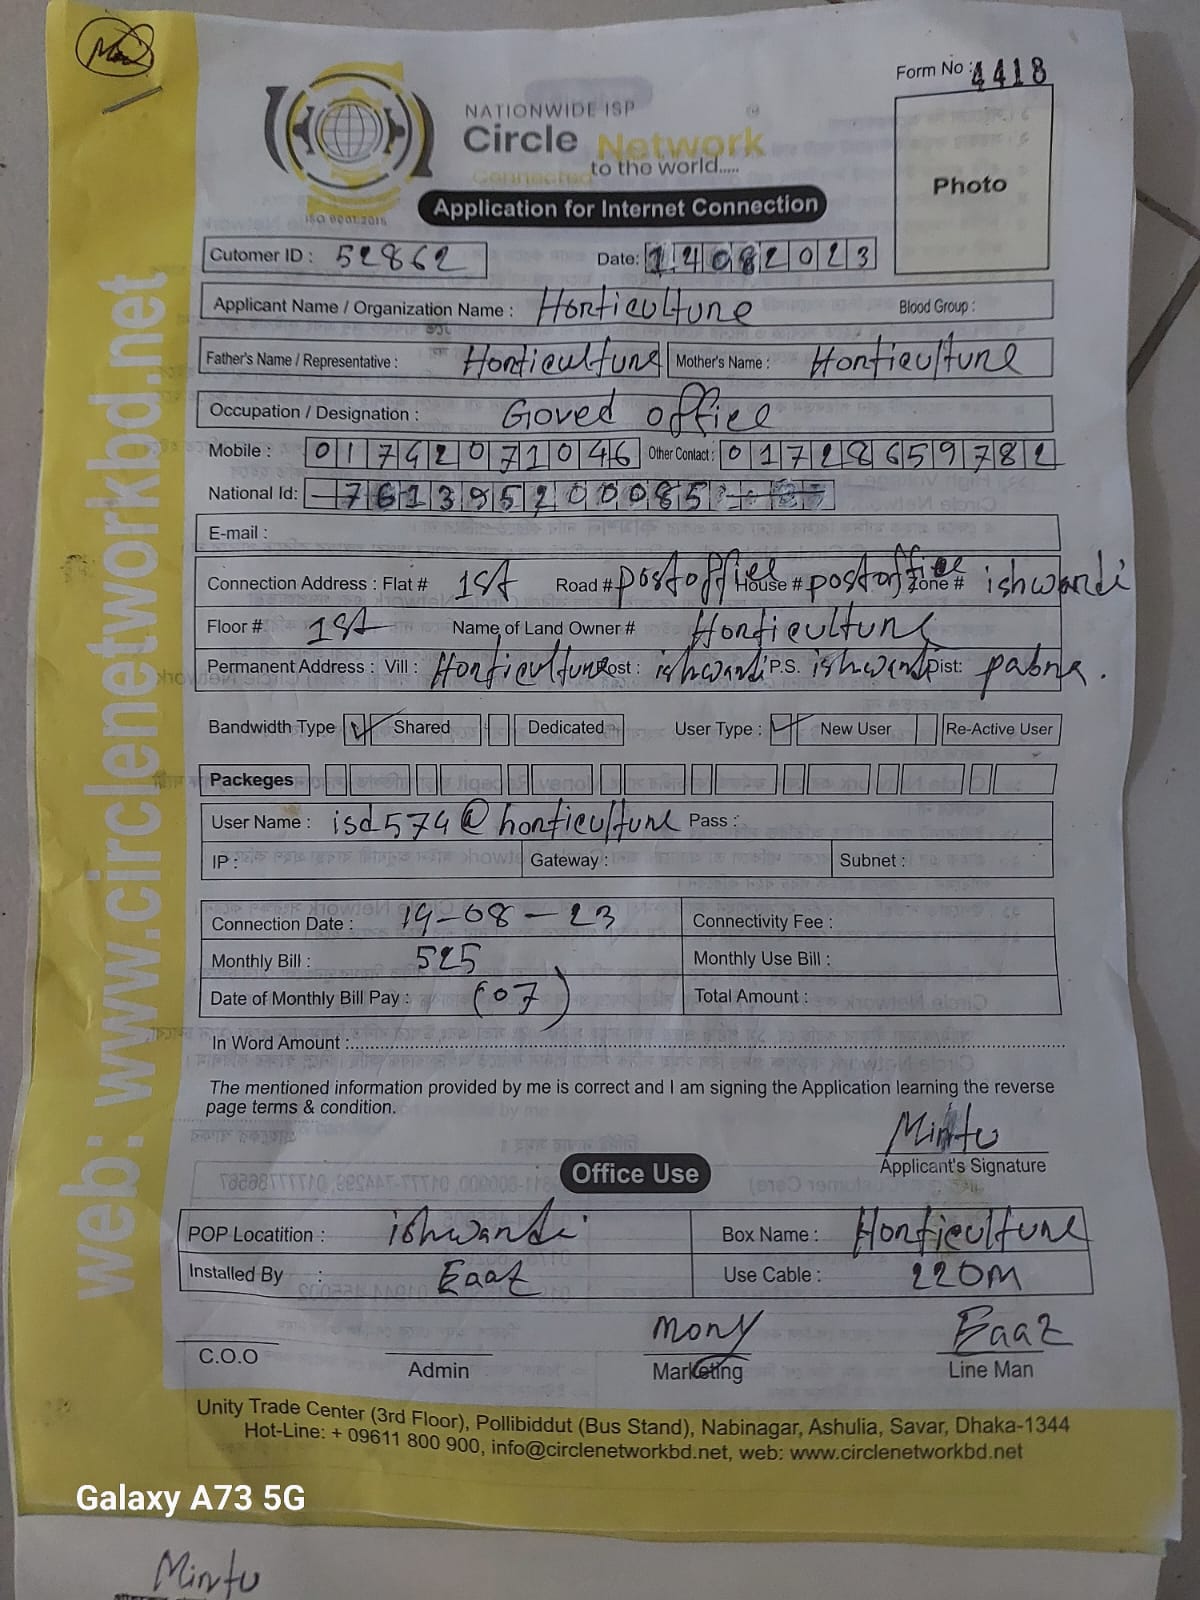 Form No : 4418
NATIONWIDE ISP
Circle Network
Connected to the world.....
ISO 9001:2015
Photo
Application for Internet Connection
Cutomer ID : 52862 Date: 14082023
Applicant Name / Organization Name : Horticulture Blood Group :
Father's Name / Representative : Horticulture Mother's Name : Horticulture
Occupation / Designation : Goved office
Mobile : 01762071046 Other Contact : 01728659782
National Id: 761395200085
E-mail :
Connection Address : Flat # 1st Road # post office House # post office Zone # ishwardi
Floor # 1st Name of Land Owner # Horticulture
Permanent Address : Vill : Horticulture Post : ishwardi P.S. ishwardi Dist: pabna.
Bandwidth Type Shared Dedicated User Type : New User Re-Active User
Packeges
User Name : isd574@horticulture Pass :
IP : Gateway : Subnet :
Connection Date : 14-08-23 Connectivity Fee :
Monthly Bill : 525 Monthly Use Bill :
Date of Monthly Bill Pay : (07) Total Amount :
In Word Amount :
The mentioned information provided by me is correct and I am signing the Application learning the reverse
page terms & condition.
Mintu
Applicant's Signature
Office Use
POP Locatition : ishwardi Box Name : Horticulture
Installed By : Eaaz Use Cable : 220M
mony Eaaz
C.O.O Admin Marketing Line Man
Unity Trade Center (3rd Floor), Pollibiddut (Bus Stand), Nabinagar, Ashulia, Savar, Dhaka-1344
Hot-Line: + 09611 800 900, info@circlenetworkbd.net, web: www.circlenetworkbd.net
web: www.circlenetworkbd.net
Galaxy A73 5G
Mintu